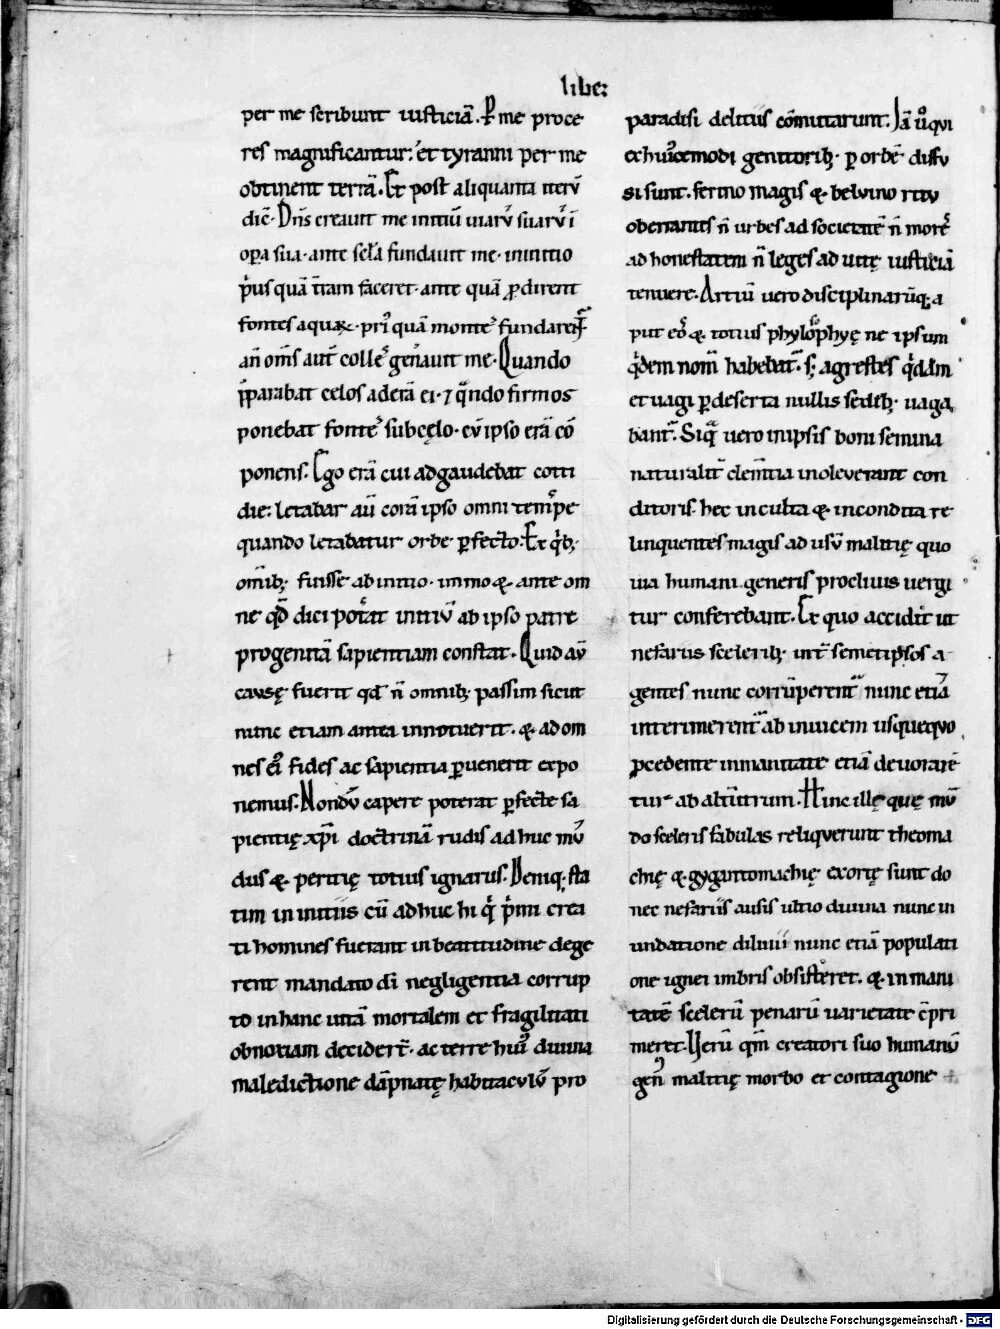 liber
per me scribunt iusticiā. ꝑ me proce
res magnificantur: et tyranni per me
obtinent terrā. Et post aliquanta iterū
dic̄. Dn̄s creauit me initiū uiarū suarū ī
oꝑa sua. ante sc̄la fundauit me. in initio
p̍us quā t̄ram faceret. ante quā ꝓdirent
fontes aquaꝝ. pri᾽ quā montes fundarent᷑
an̄ om̄s aut̄ colles gen̄auit me. Quando
p̄parabat celos aderā ei. ⁊ qᷓndo firmos
ponebat fontes sub cęlo. cū ipso erā cō
ponens. Ego erā cui adgaudebat cotti
die: letabar aū corā ipso omni tempe
quando letabatur orbe ꝑfecto. Ex qͥb;
omīb; fuisse ab initio. immo & ante om
ne qd̄ dici potͣat initiū ab ipso patre
progenitā sapientiam constat. Quid aū
causę fuerit qd̄ n̄ omnib; passim sicut
nunc etiam antea innotuerit. & ad om
nes ei᾽ fides ac sapientia ꝑuenerit expo
nemus. Nondū capere poterat ꝑfecte sa
pientię xp̄i doctrinā rudis adhuc mū
dus & peritię totius ignarus. Deniq; sta
tim in initiis cū adhuc hi qͥ p̍mi crea
ti homines fuerant in beatitudine dege
rent mandato dī negligentia corrup
to in hanc uitā mortalem et fragilitati
obnoxiam decidert̄. ac terre hui᾽ diuina
maledictione dāpnatę habitaculū pro
paradisi delitiis cōmutarunt. Iā ūo qui
ex hui᾽cemodi genitorib; ꝑ orbē diffu
si sunt. ferino magis & beluino ritu
oberrantes n̄ urbes ad societatē n̄ mores
ad honestatem n̄ leges ad uitę iusticiā
tenuere. Artiū uero disciplinarūq; a
put eos & totius phylosophyę ne ipsum
qͥdem nom̄ habebat᷑. s; agrestes qͥdam
et uagi ꝑ deserta nullis sedib; uaga
bant᷑. Siqᷓ uero in ipsis boni semina
naturalit̄ clem̄tia inoleuerant con
ditoris. hec inculta & incondita re
linquentes magis ad usū malitię quo
uia humani generis procliuis uergi
tur conferebant. Ex quo accidit ut
nefariis scelerib; int̄ semetipsos a
gentes nunc corrūperent᷑ nunc etiā
interimerent᷑ ab inuicem usquequo
ꝓcedente inmanitate etiā deuorarē
tur ab alt̄utrum. Hinc illę que mū
do sceleris fabulas reliquerunt theoma
chię & gygantomachię exortę sunt do
nec nefariis ausis ultio diuina nunc in
undatione diluuii nunc etiā populati
one ignei imbris obsisteret. & inmani
tatē scelerū penarū uarietate c̄pri
meret. Uerū qm̄ creatori suo humanū
gen᾽ malitię morbo et contagione
Digitalisierung gefördert durch die Deutsche Forschungsgemeinschaft - DFG